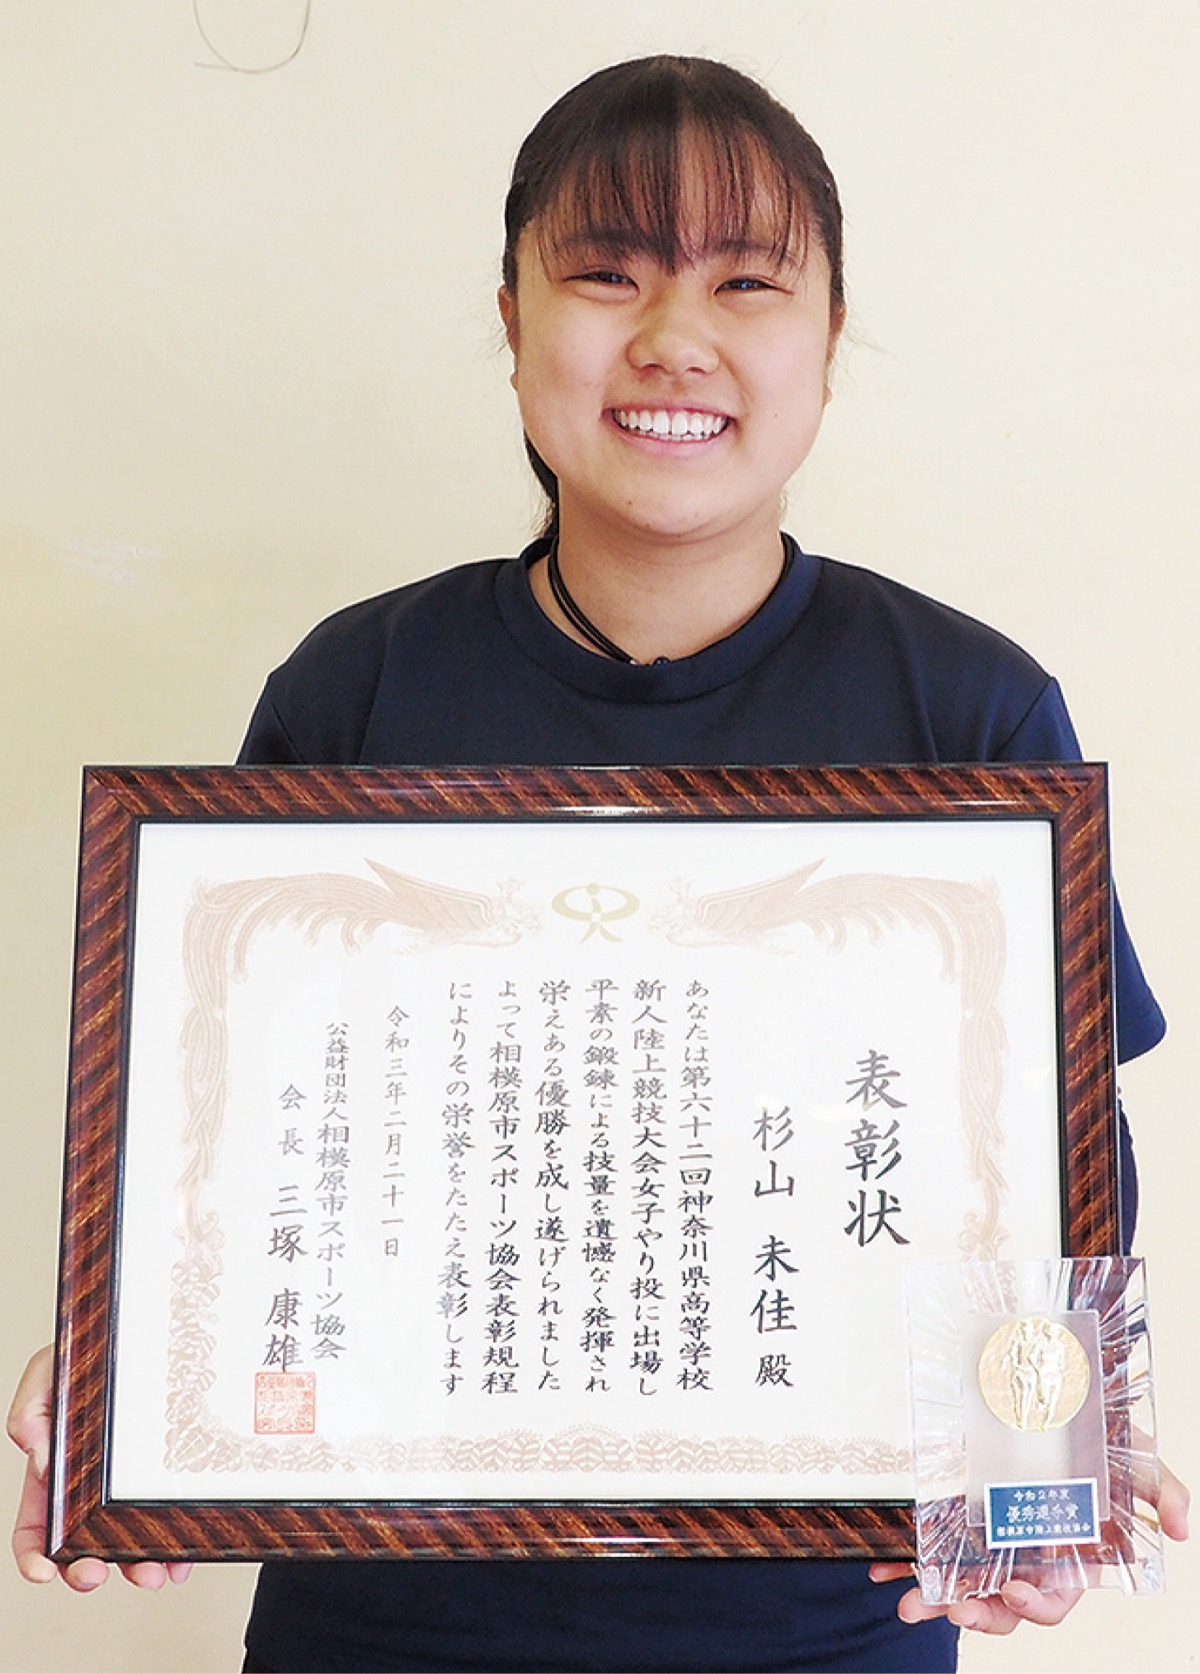 表彰状
杉山 未佳 殿
あなたは第六十二回神奈川県高等学校
新人陸上競技大会女子やり投に出場し
平素の鍛錬による技量を遺憾なく発揮され
栄えある優勝を成し遂げられました
よって相模原市スポーツ協会表彰規程
によりその栄誉をたたえ表彰します
令和三年二月二十一日
公益財団法人相模原市スポーツ協会
会長 三塚 康雄
令和2年度
優秀選手賞
相模原市陸上競技協会